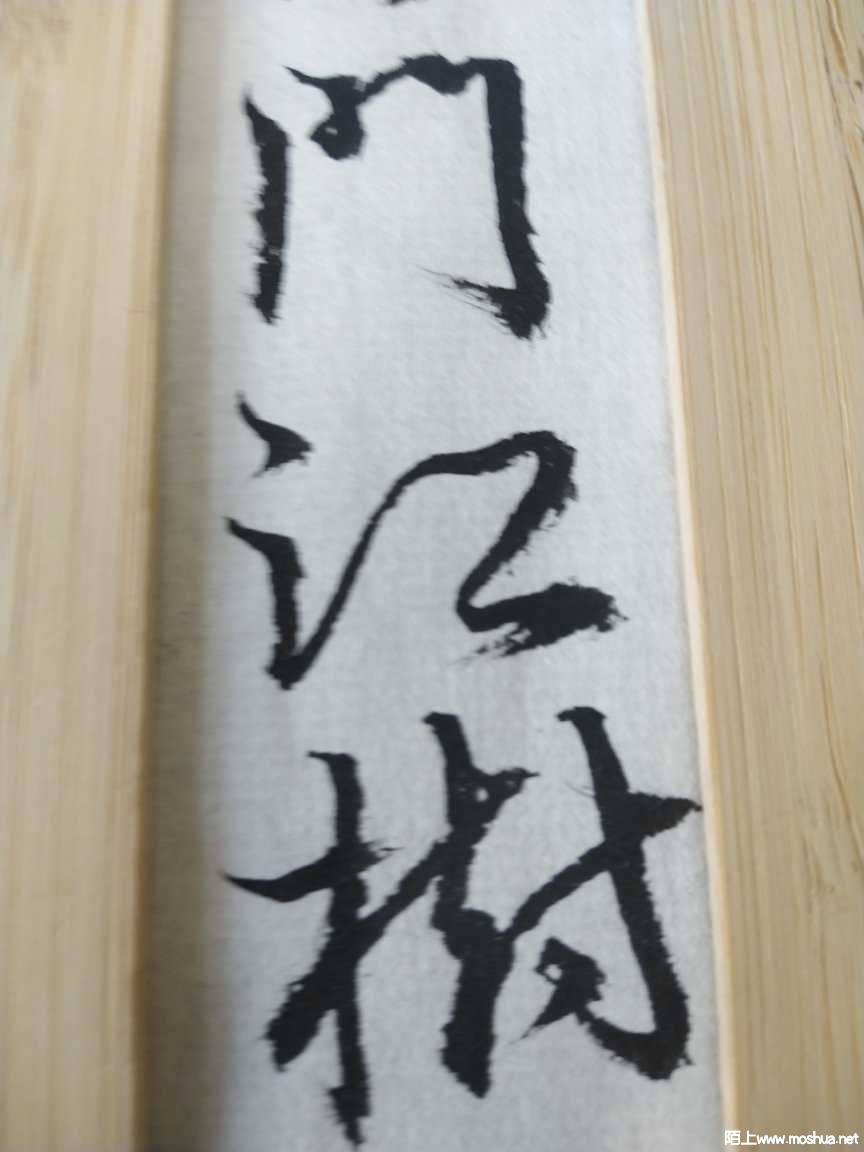 門江樹
陌上www.moshua.net